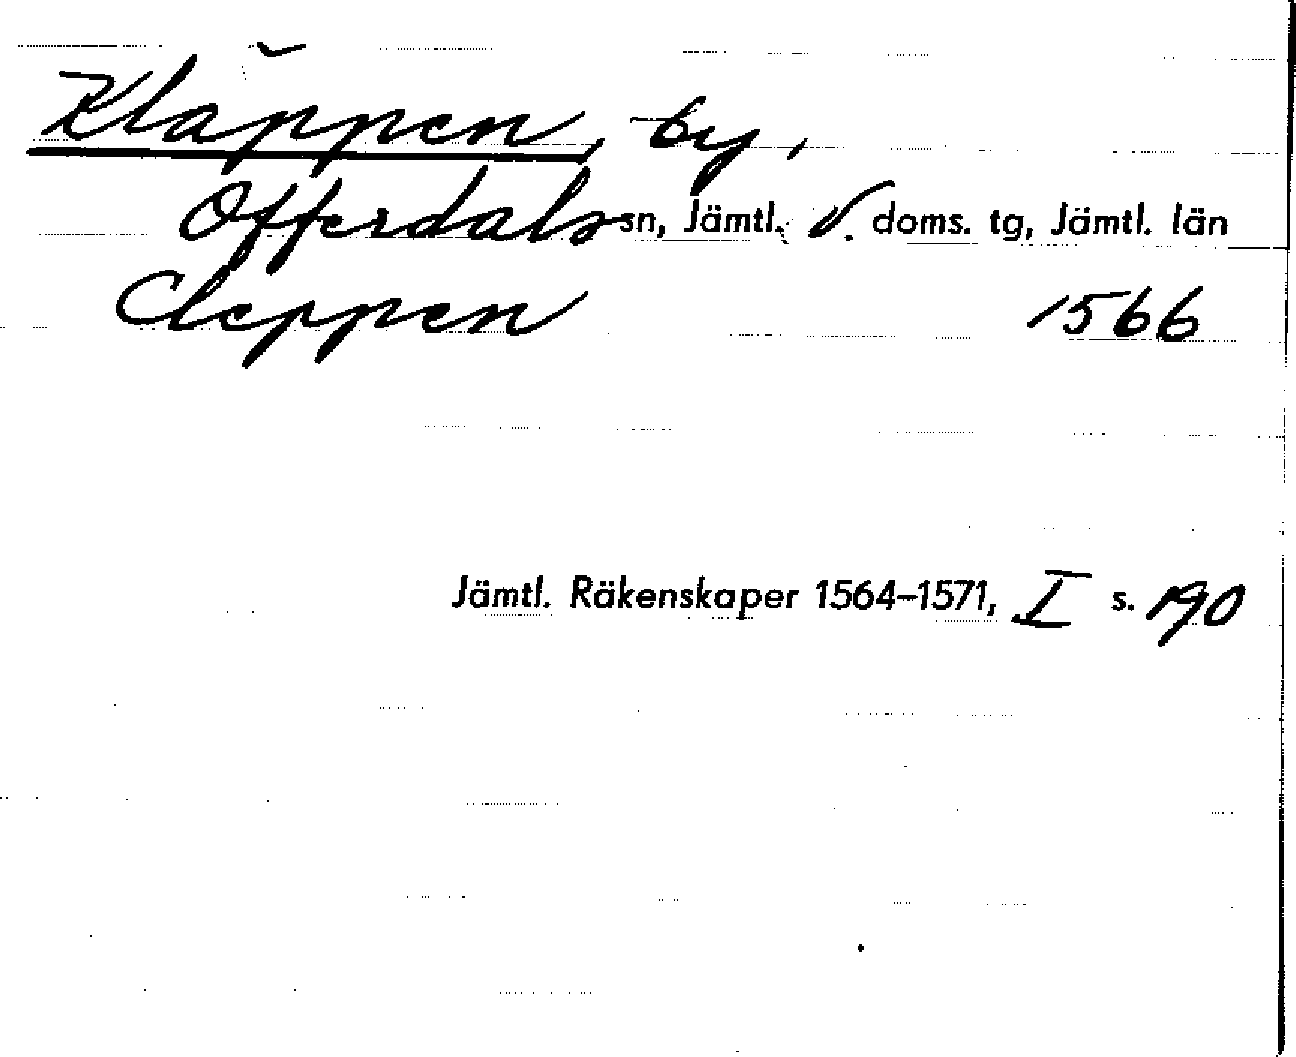 Kläppen, by,
Offerdals sn, Jämtl. V. doms. tg, Jämtl. län
Cleppen 1566
Jämtl. Räkenskaper 1564–1571, I s. 190